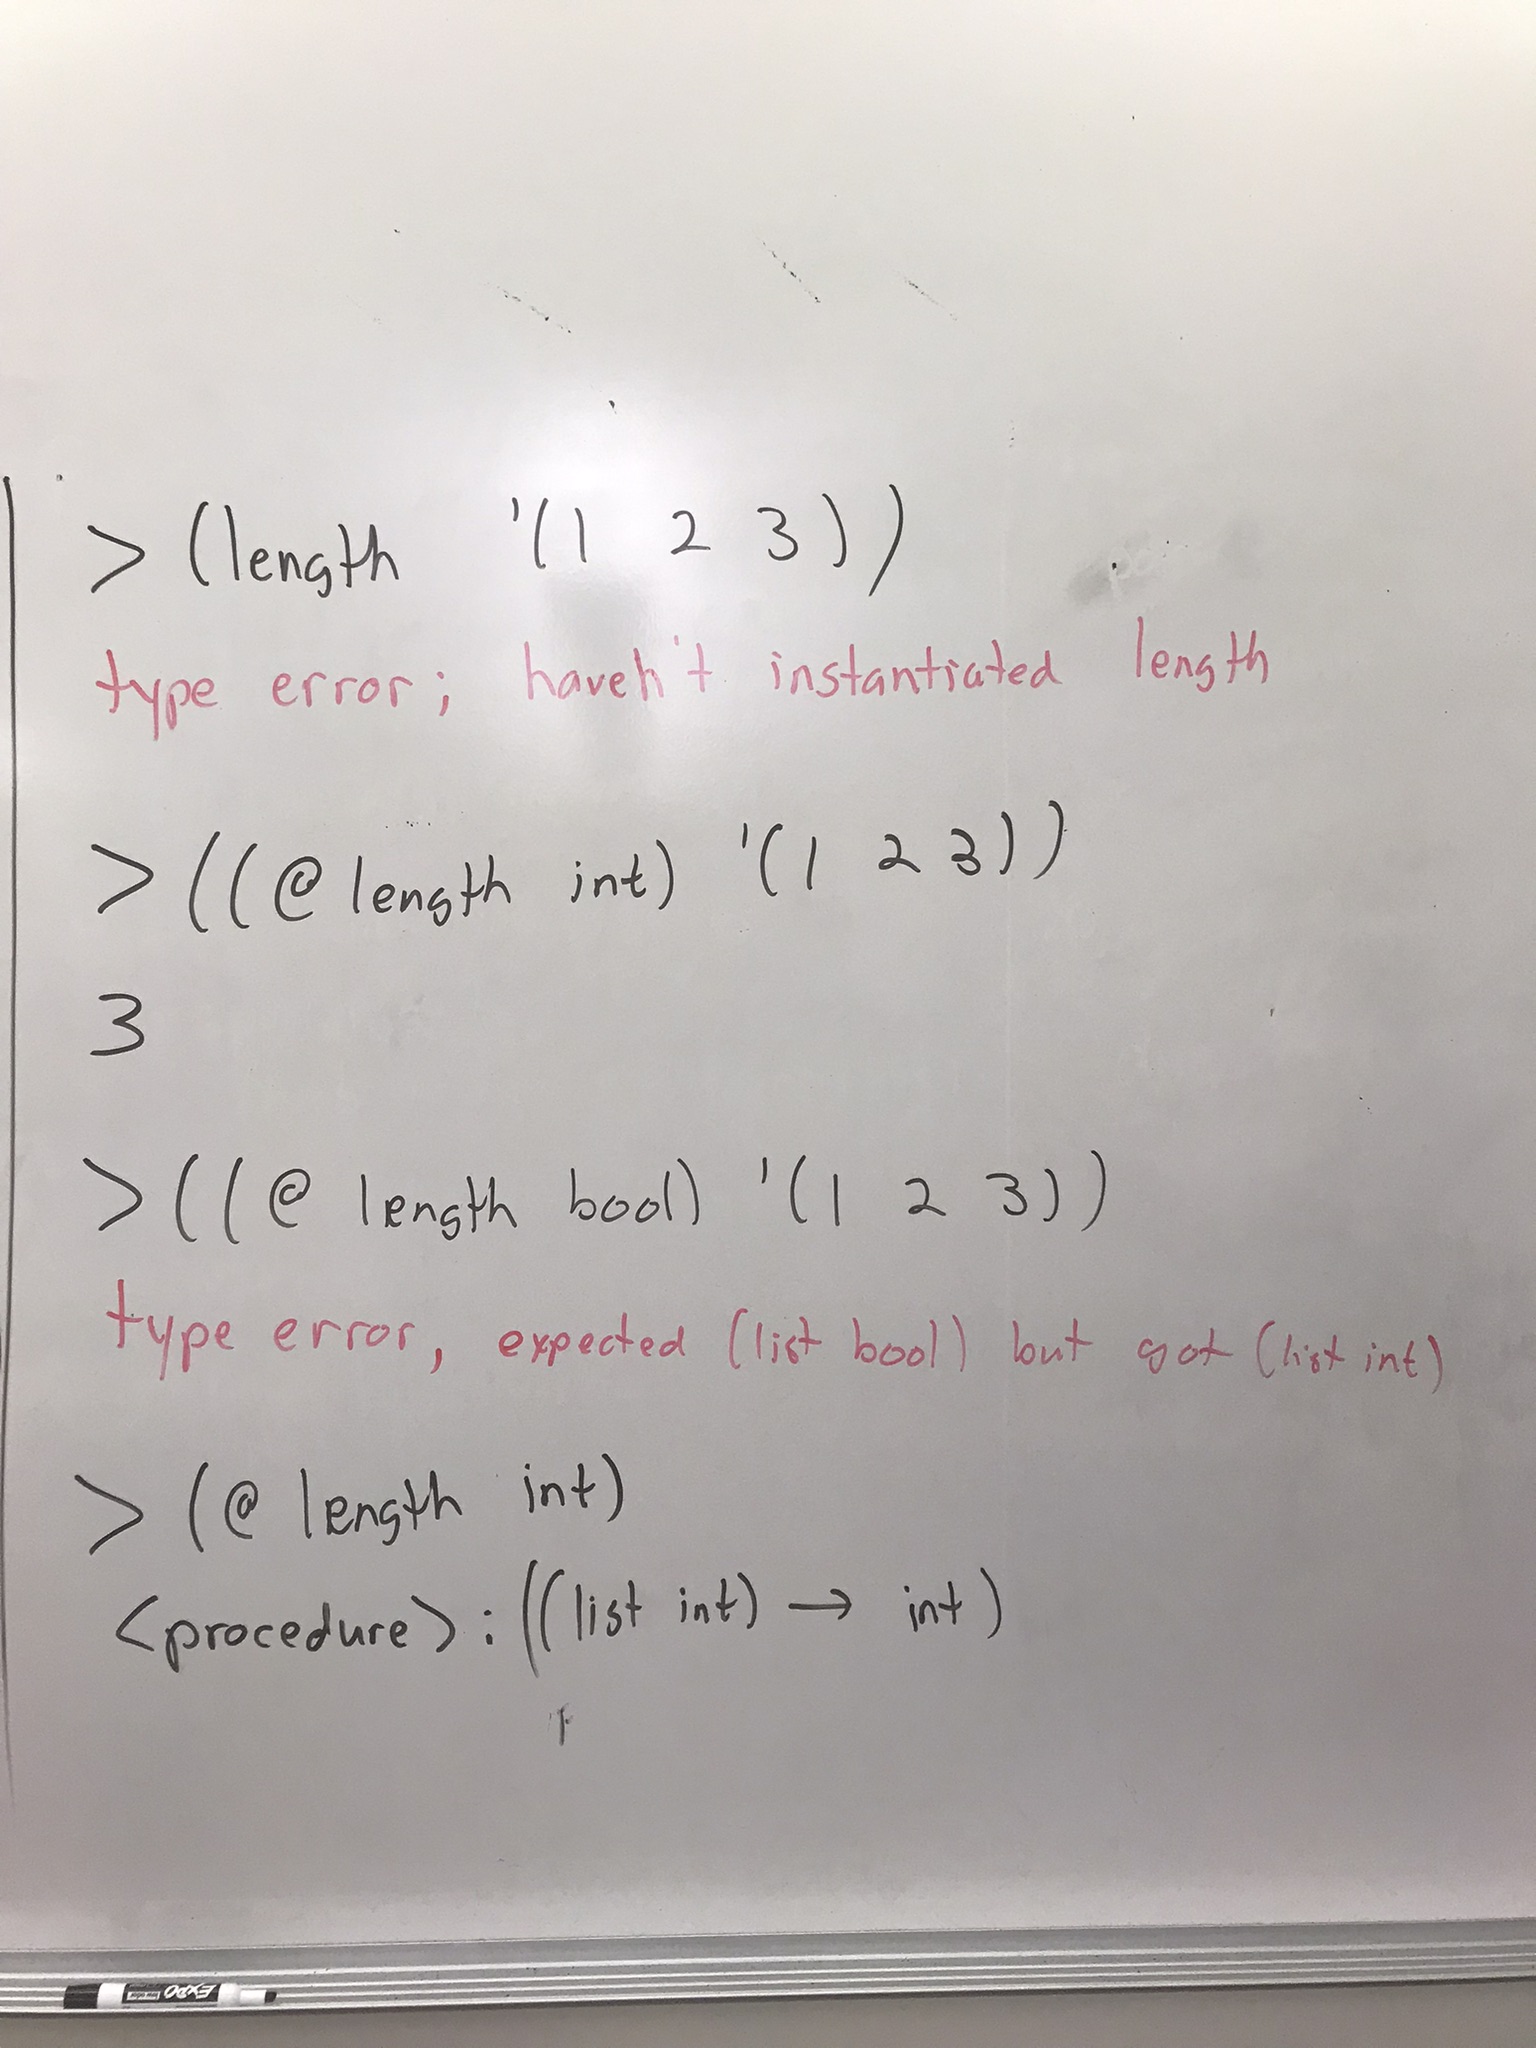 > (length '(1 2 3))
type error; haven't instantiated length
> ((@ length int) '(1 2 3))
3
> ((@ length bool) '(1 2 3))
type error, expected (list bool) but got (list int)
> (@ length int)
<procedure> : ((list int) → int)
EXPO